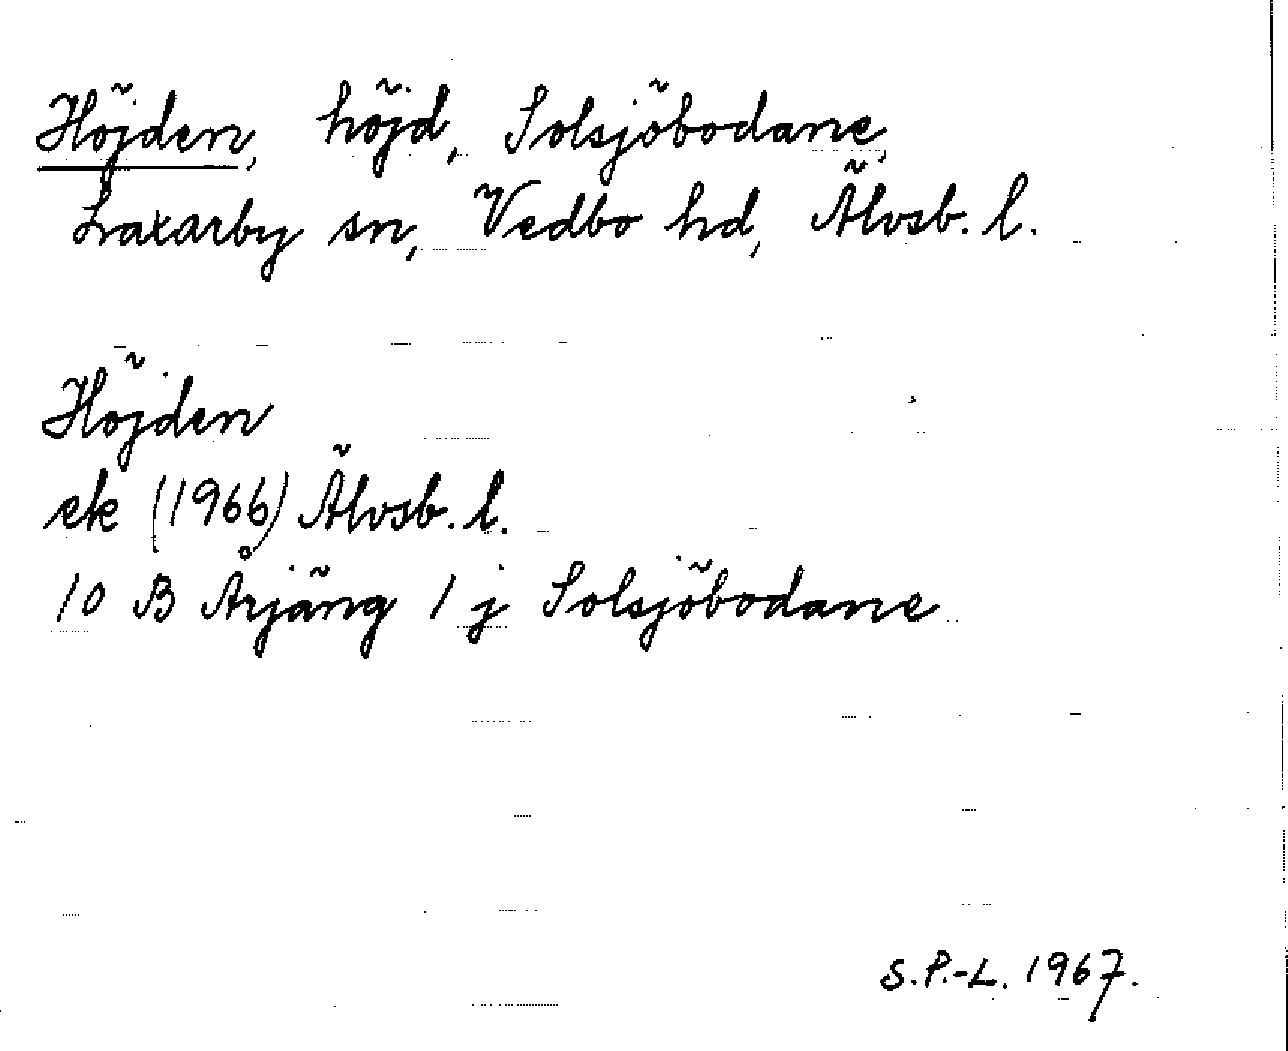 Höjden, höjd, Solsjöbodane,
Laxarby sn, Vedbo hd, Älvsb. l.
Höjden
ek (1966) Älvsb. l.
10 B Årjäng 1 j Solsjöbodane
S.P.-L. 1967.